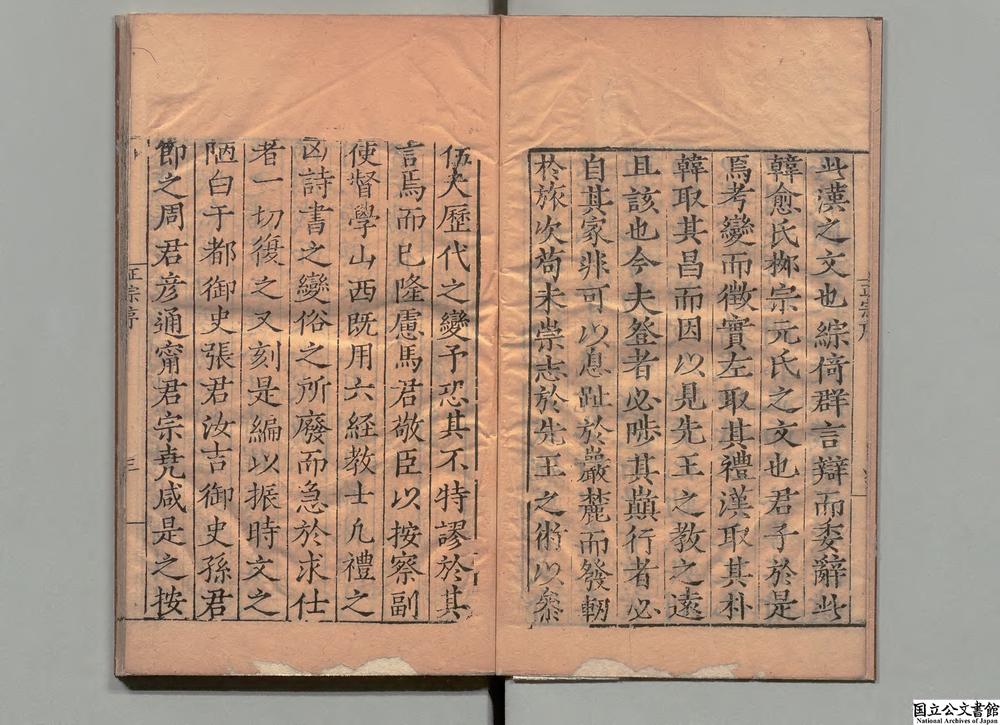 此漢之文也綜倚群言辯而委辭此
韓愈氏栁宗元氏之文也君子於是
焉考變而徵實左取其禮漢取其朴
韓取其昌而因以見先王之教之遠
且該也今夫登者必陟其巔行者必
自其家非可以息趾於巖麓而發軔
於旅次苟未崇志於先王之術以叅
伍夫歷代之變予恐其不特謬於其
言焉而已隆慮馬君敬臣以按察副
使督學山西既用六経教士凡禮之
凶詩書之變俗之所廢而急於求仕
者一切復之又刻是編以振時文之
陋白于都御史張君汝吉御史孫君
節之周君彦通甯君宗堯咸是之按
正宗序
三
国立公文書館
National Archives of Japan